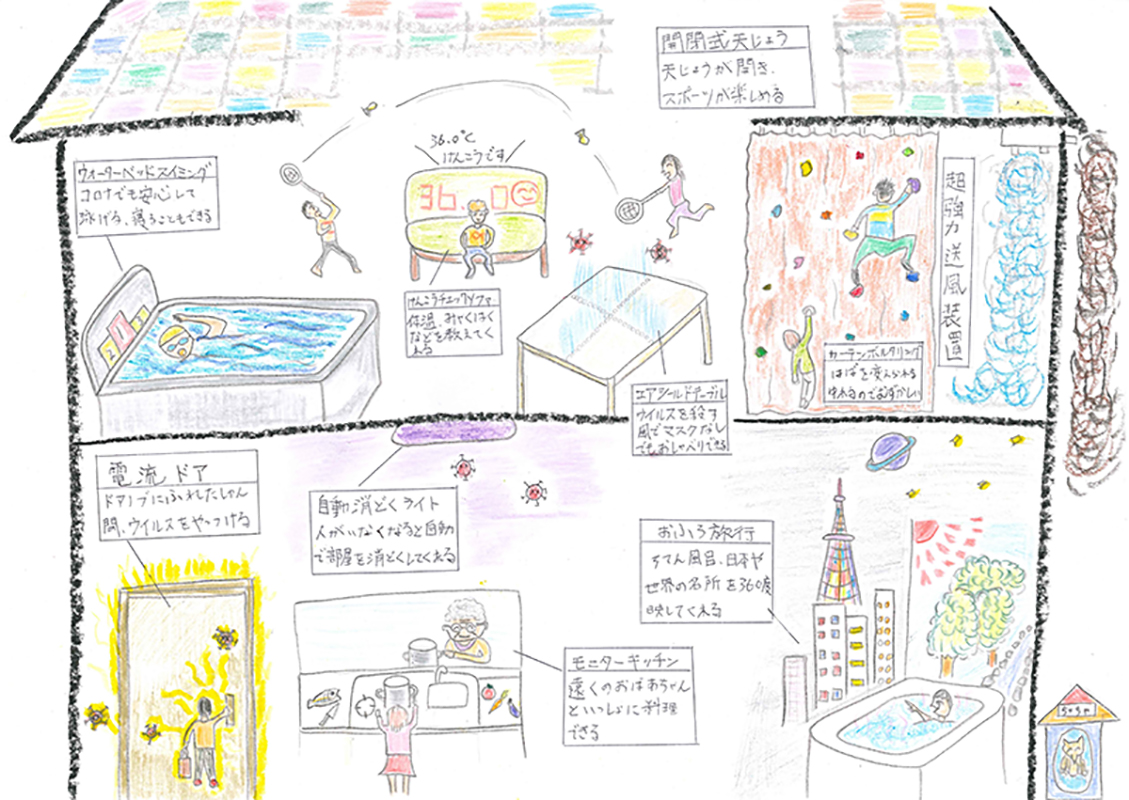 開閉式天じょう
天じょうが開き、
スポーツが楽しめる
ウォーターベッドスイミング
コロナでも安心して
泳げる、寝ることもできる
36.0℃
けんこうです
36.0
けんこうチェックソファ
体温、みゃくはく
などを教えてく
れる
エアシールドテーブル
ウイルスを殺す
風でマスクなし
でもおしゃべりできる
カーテンボルダリング
はばを変えられる
ゆれるのでむずかしい
超強力送風装置
電流ドア
ドアノブにふれたしゅん
間、ウイルスをやっつける
自動消どくライト
人がいなくなると自動
で部屋を消どくしてくれる
モニターキッチン
遠くのおばあちゃん
といっしょに料理
できる
おふろ旅行
ろてん風呂、日本や
世界の名所を360度
映してくれる